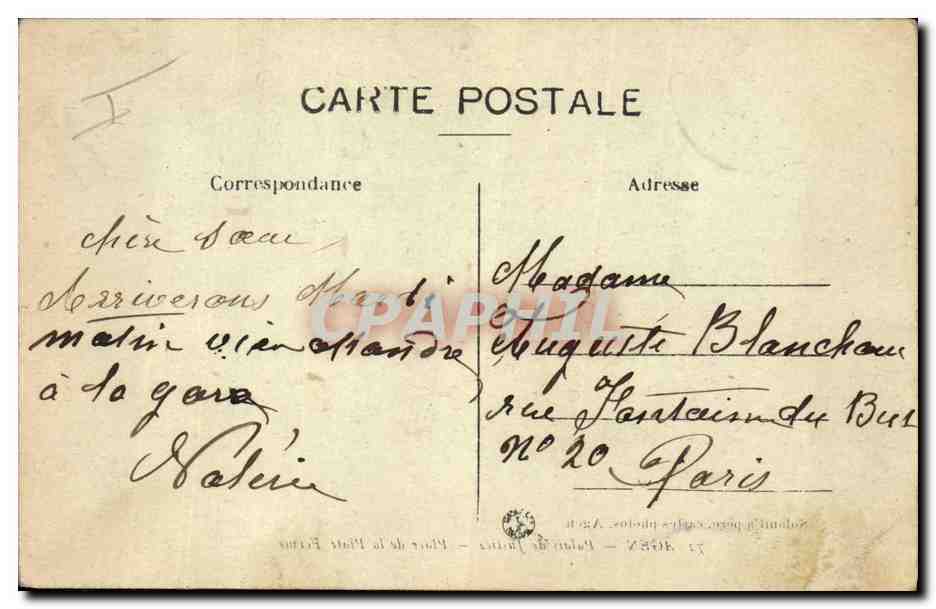 CARTE POSTALE
Correspondance
chère Sœur
Arriverons Mardi
matin viens attendre
à la gare
Valérie
Adresse
Madame
Auguste Blancheau
rue Fontaine du But
N° 20 Paris
CPAPHIL
cartes photos. Agen
72 AGEN — Palais de Justice — Place de la Plate Forme